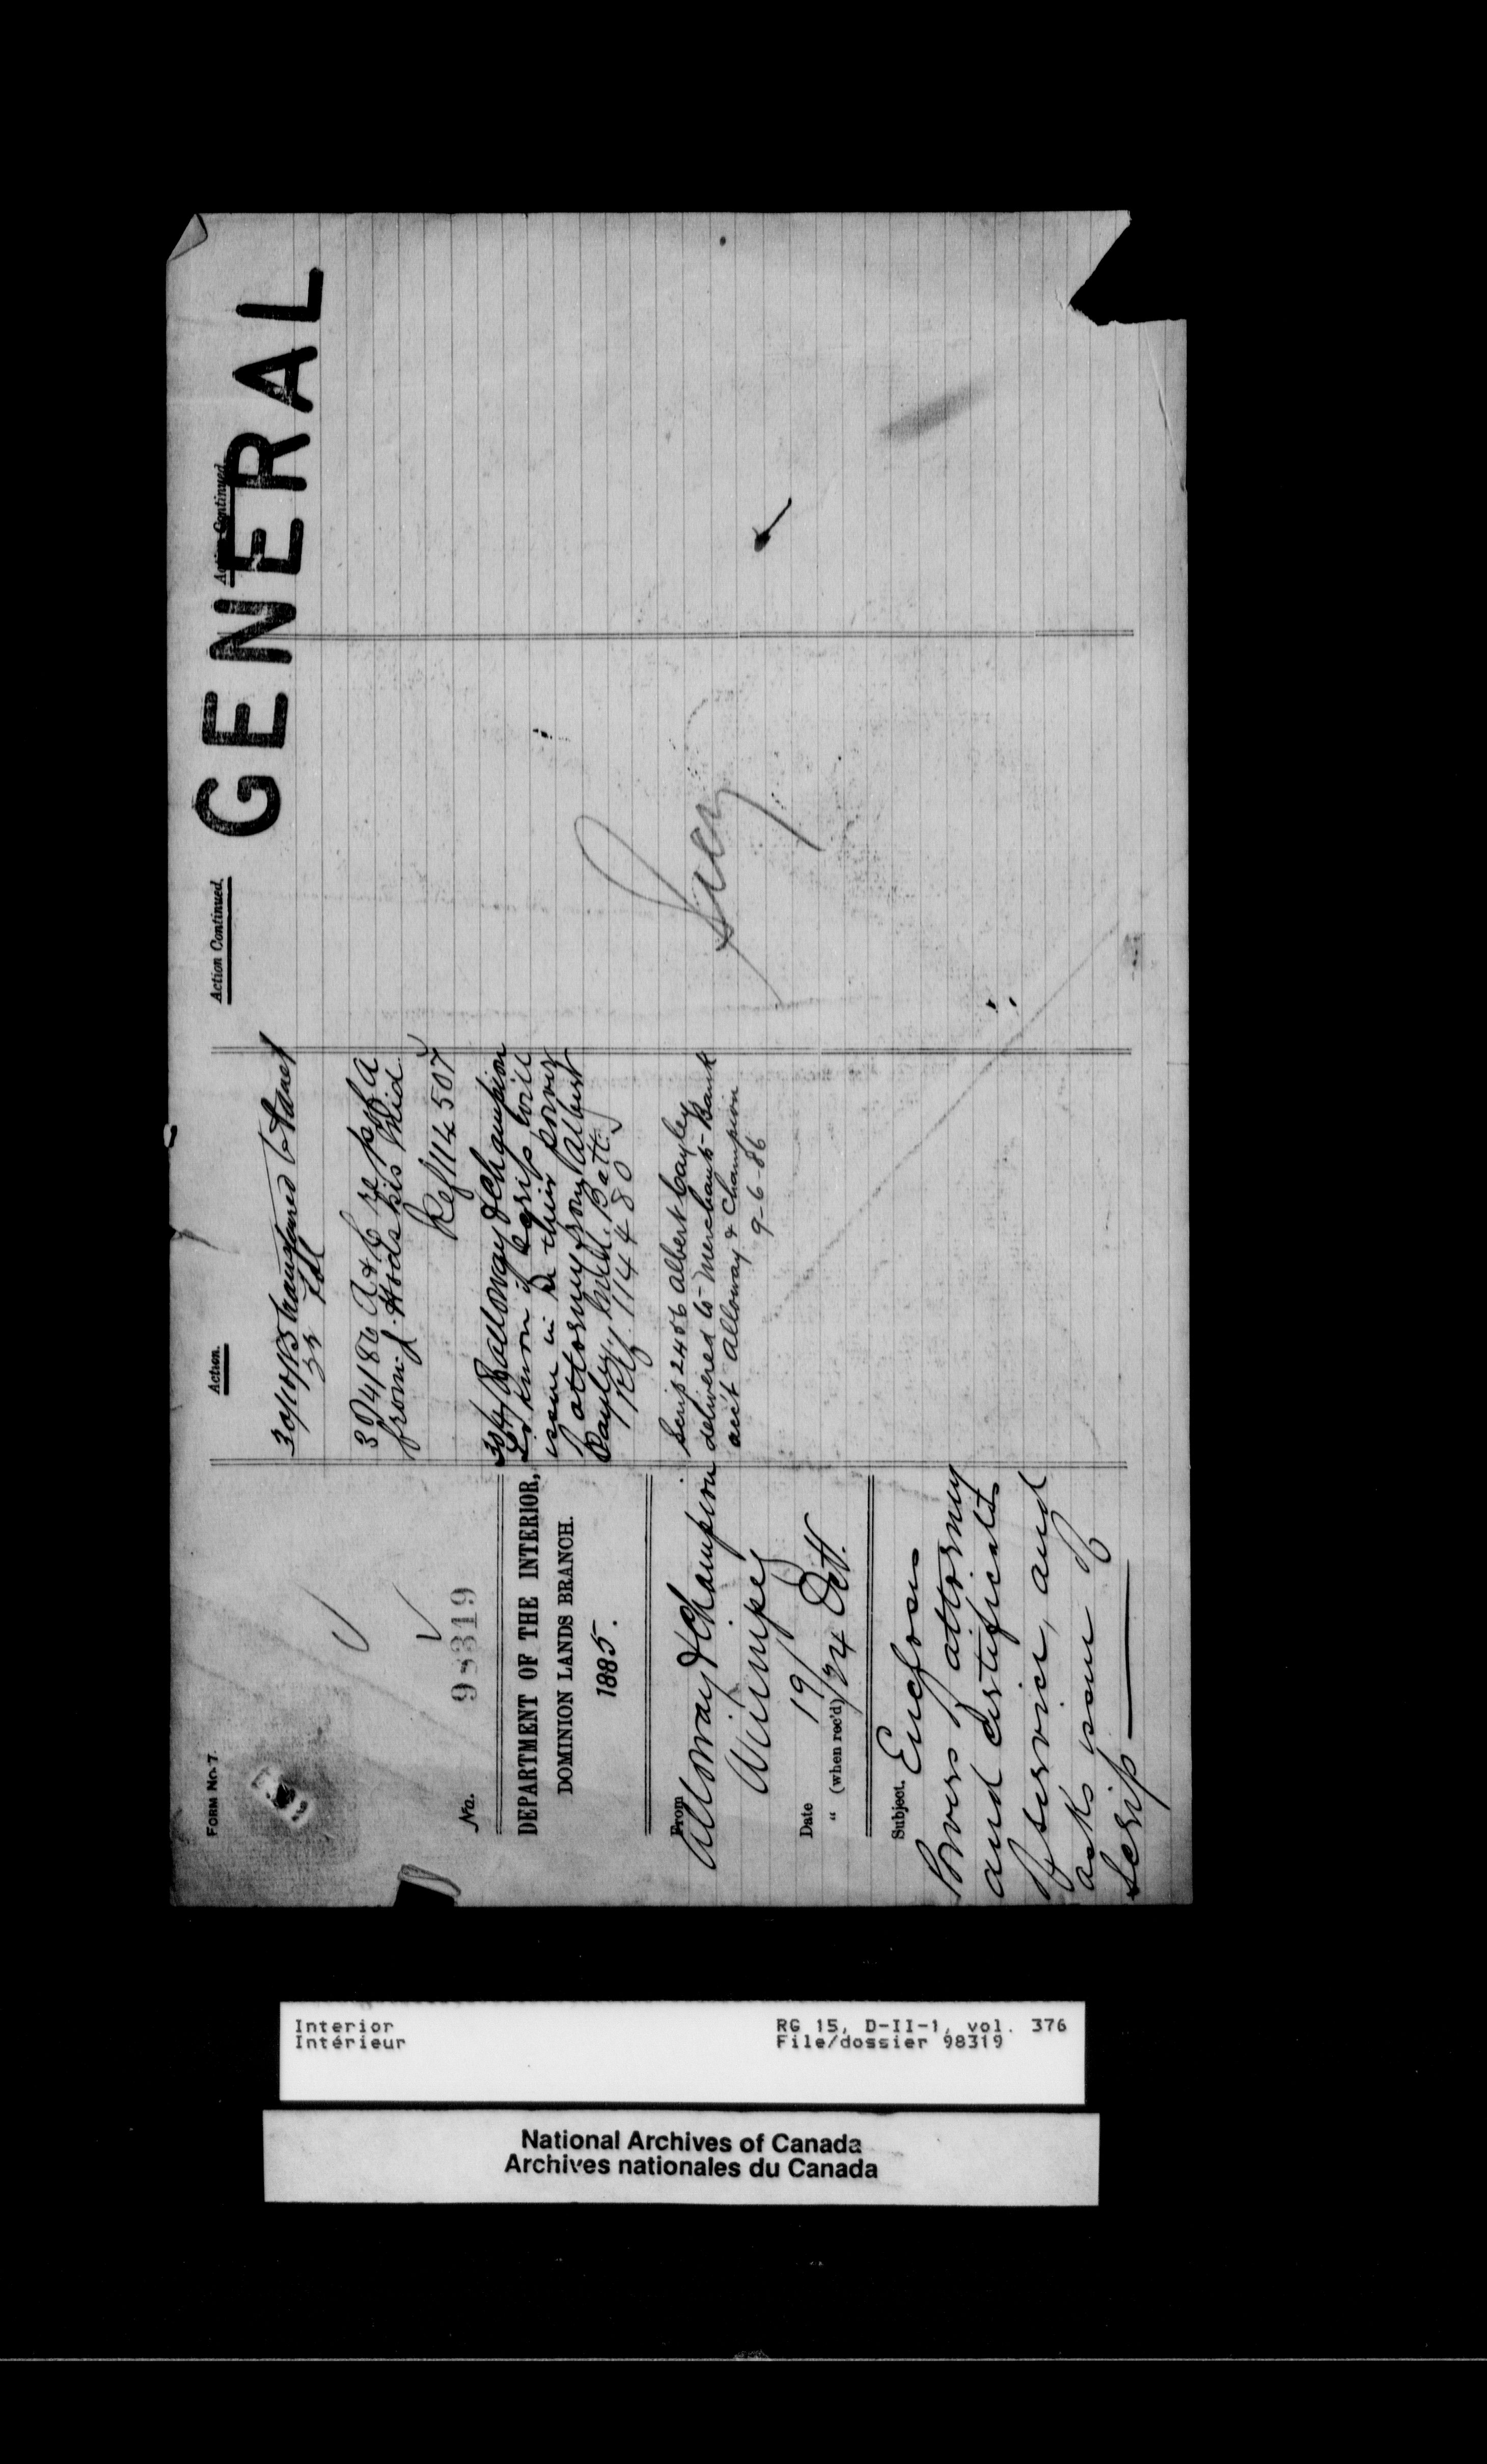 FORM No. 7
No. 98319
DEPARTMENT OF THE INTERIOR,
DOMINION LANDS BRANCH.
1885.
From
Alloway & Champion
Winnipeg
Date 19/
" (when rec'd) 24 Oct.
Subject. Encloses
Power of attorney
and certificate
of service, and
asks issue of
Scrip
Action.
30/10/85 transferred
30/4/86 A & C re p of a
from J. Hodgkis Mid
Ref 114507
30/4/86 Alloway & Champion
scrip will
issue in their power
attorney from Albert
Bayley, Midd. Batt.
Ref. 114480
Scrip 2456 Albert Cayley
delivered to Merchants Bank
acc't Alloway & Champion
9-6-86
Action Continued.
Action Continued.
GENERAL
Interior
Intérieur
RG 15, D-II-1, vol. 376
File/dossier 98319
National Archives of Canada
Archives nationales du Canada